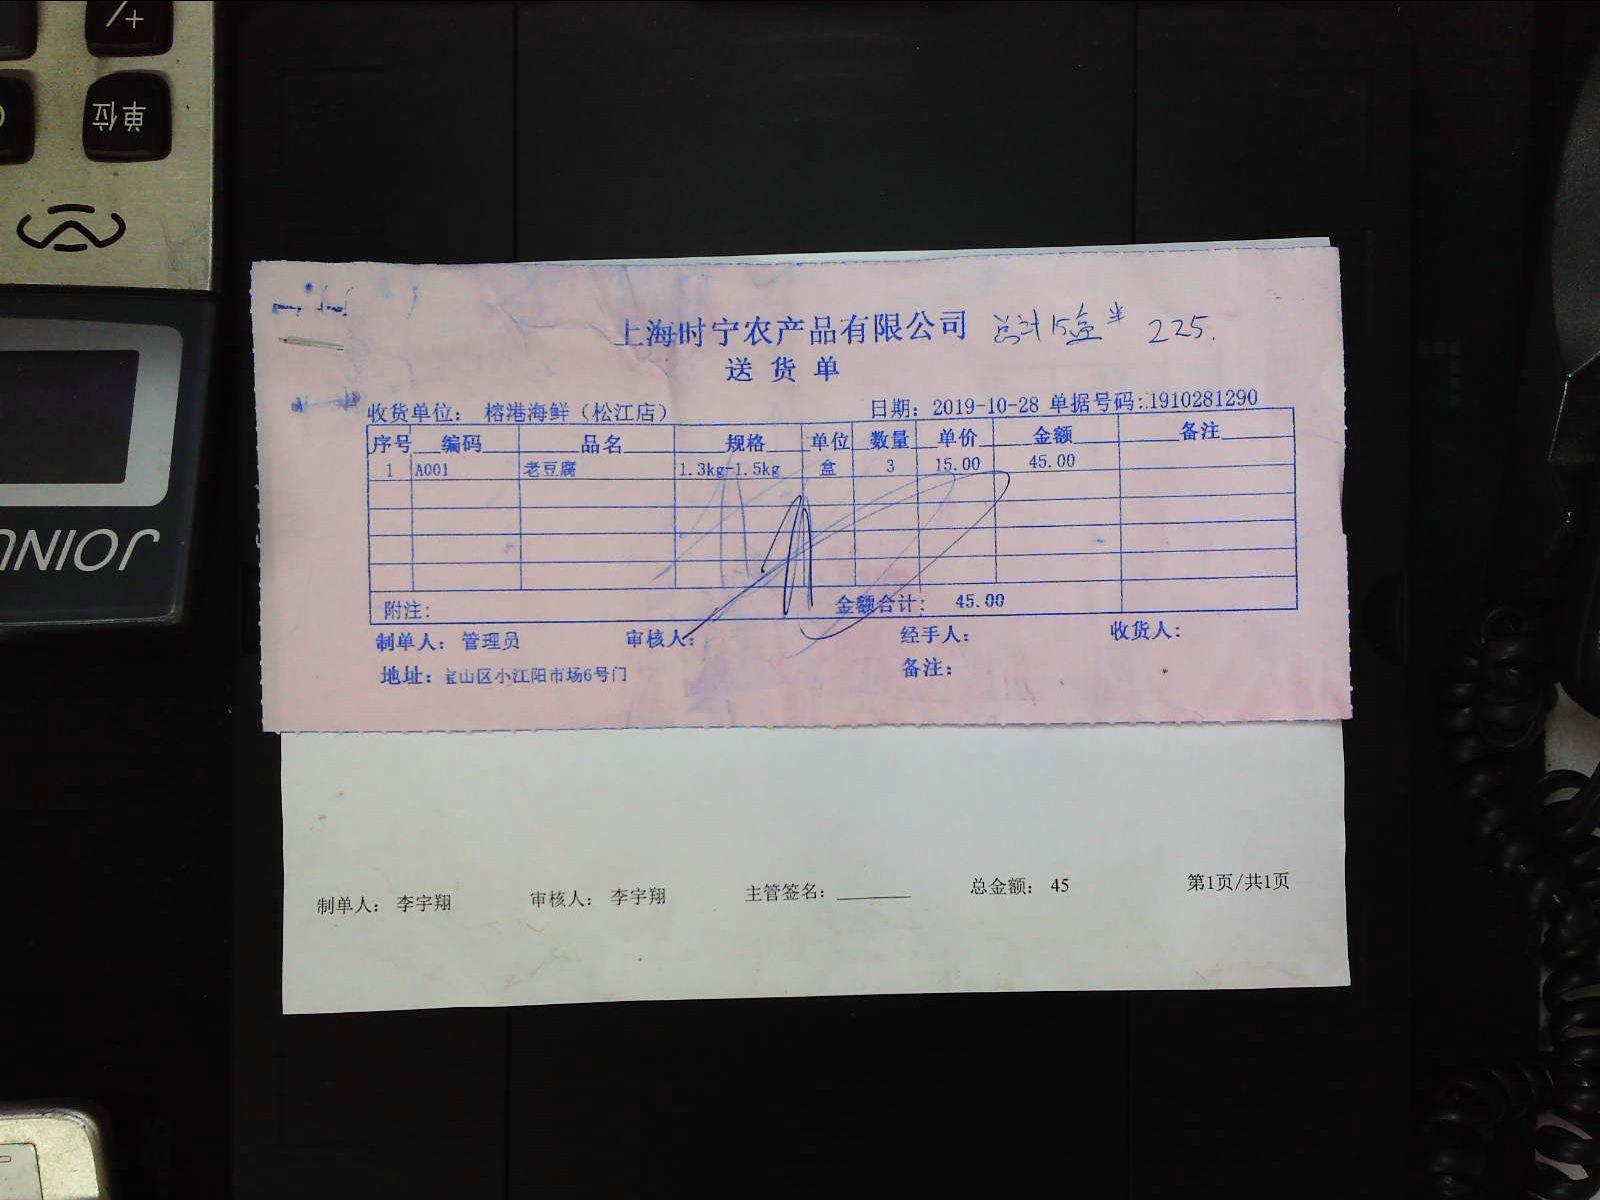 单位
JOINU
上海时宁农产品有限公司 总计15盒半 225.
送货单
收货单位： 榕港海鲜（松江店） 日期：2019-10-28 单据号码:.1910281290
序号 编码 品名 规格 单位 数量 单价 金额 备注
1 A001 老豆腐 1.3kg-1.5kg 盒 3 15.00 45.00
附注: 金额合计： 45.00
制单人：管理员 审核人: 经手人: 收货人:
地址：宝山区小江阳市场6号门 备注:
制单人： 李宇翔 审核人： 李宇翔 主管签名: 总金额： 45 第1页/共1页